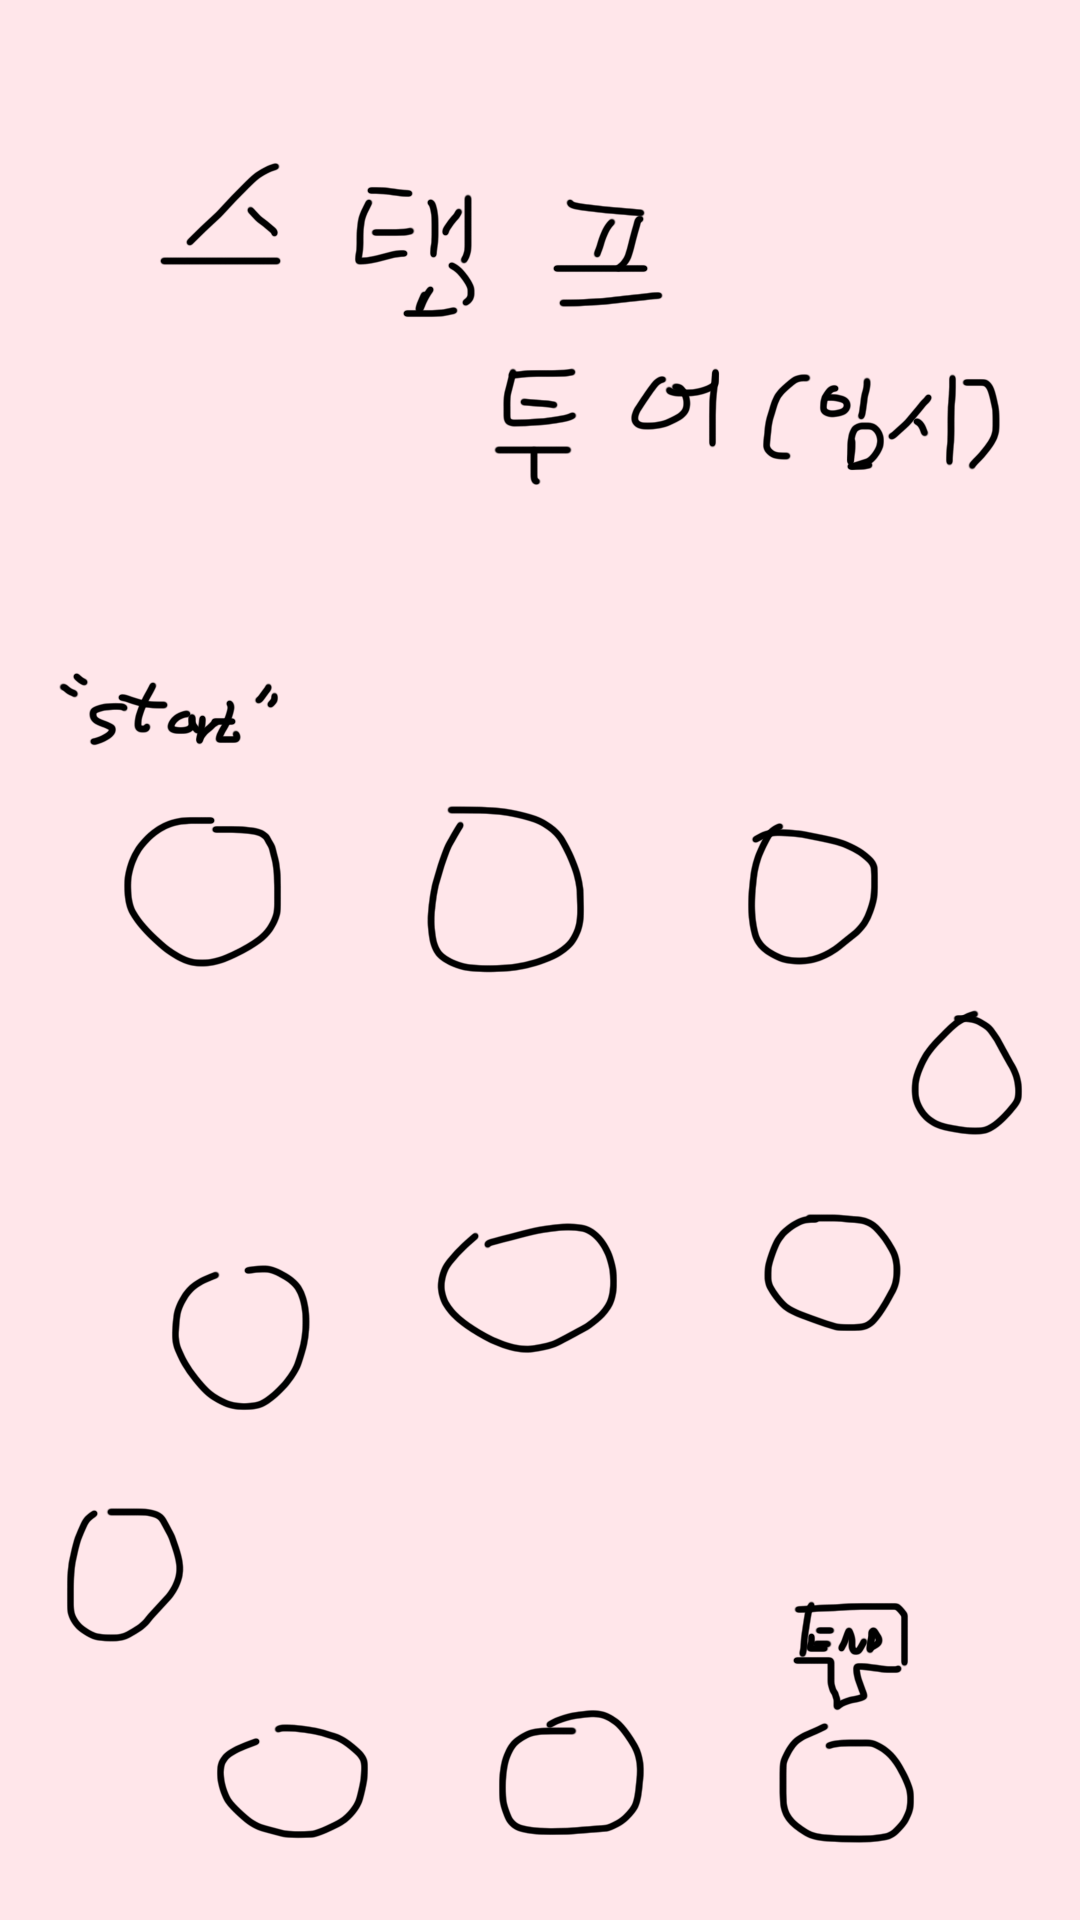 스탬프
투어(임시)
"start"
END